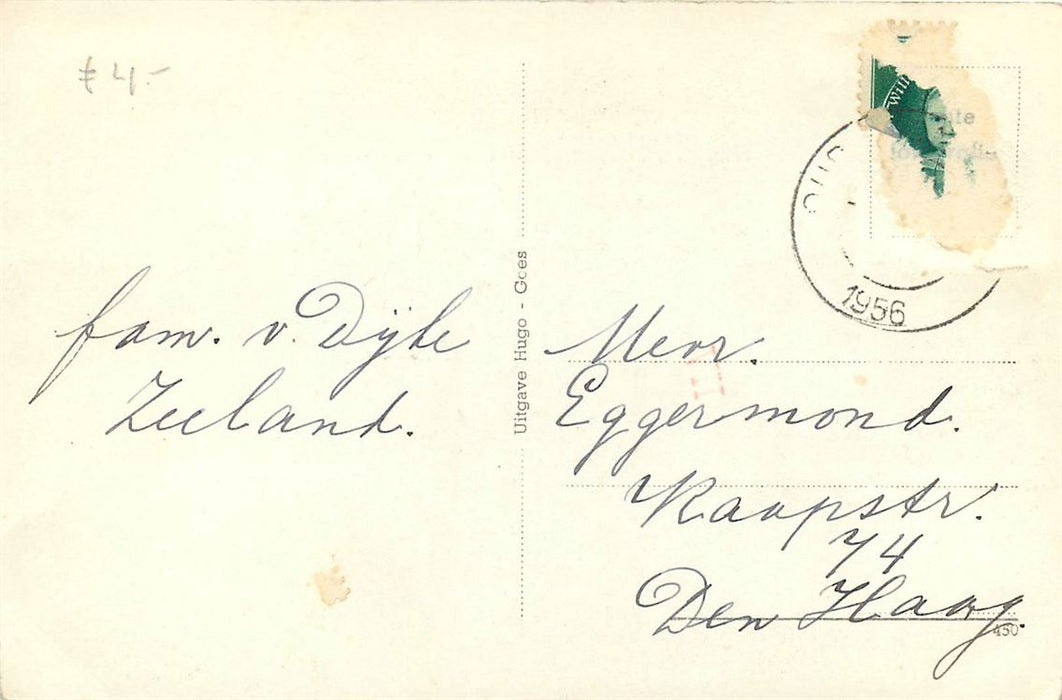 £ 4.-
fam. v. Dijke
Zeeland.
Uitgave Hugo - Goes
1956
Mevr.
Eggermond.
Kaapstr.
74
Den Haag.
450